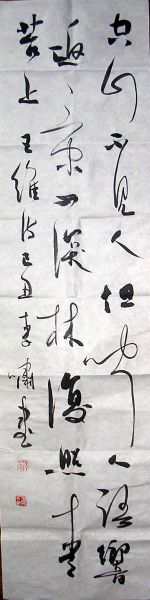 空山不見人但聞人語響
返景入深林復照青
苔上 王維詩己丑李嘯書